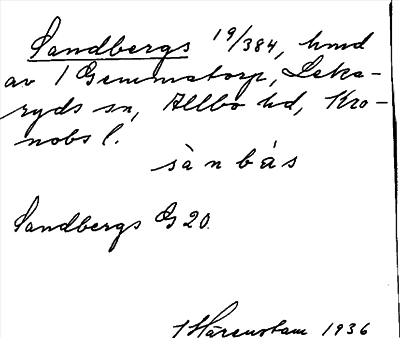 Sandbergs 19/384, hmd
av 1 Gemmatorp, Leka-
ryds sn, Allbo hd, Kro-
nobs l.
sànbás
Sandbergs G 20.
Härenstam 1936